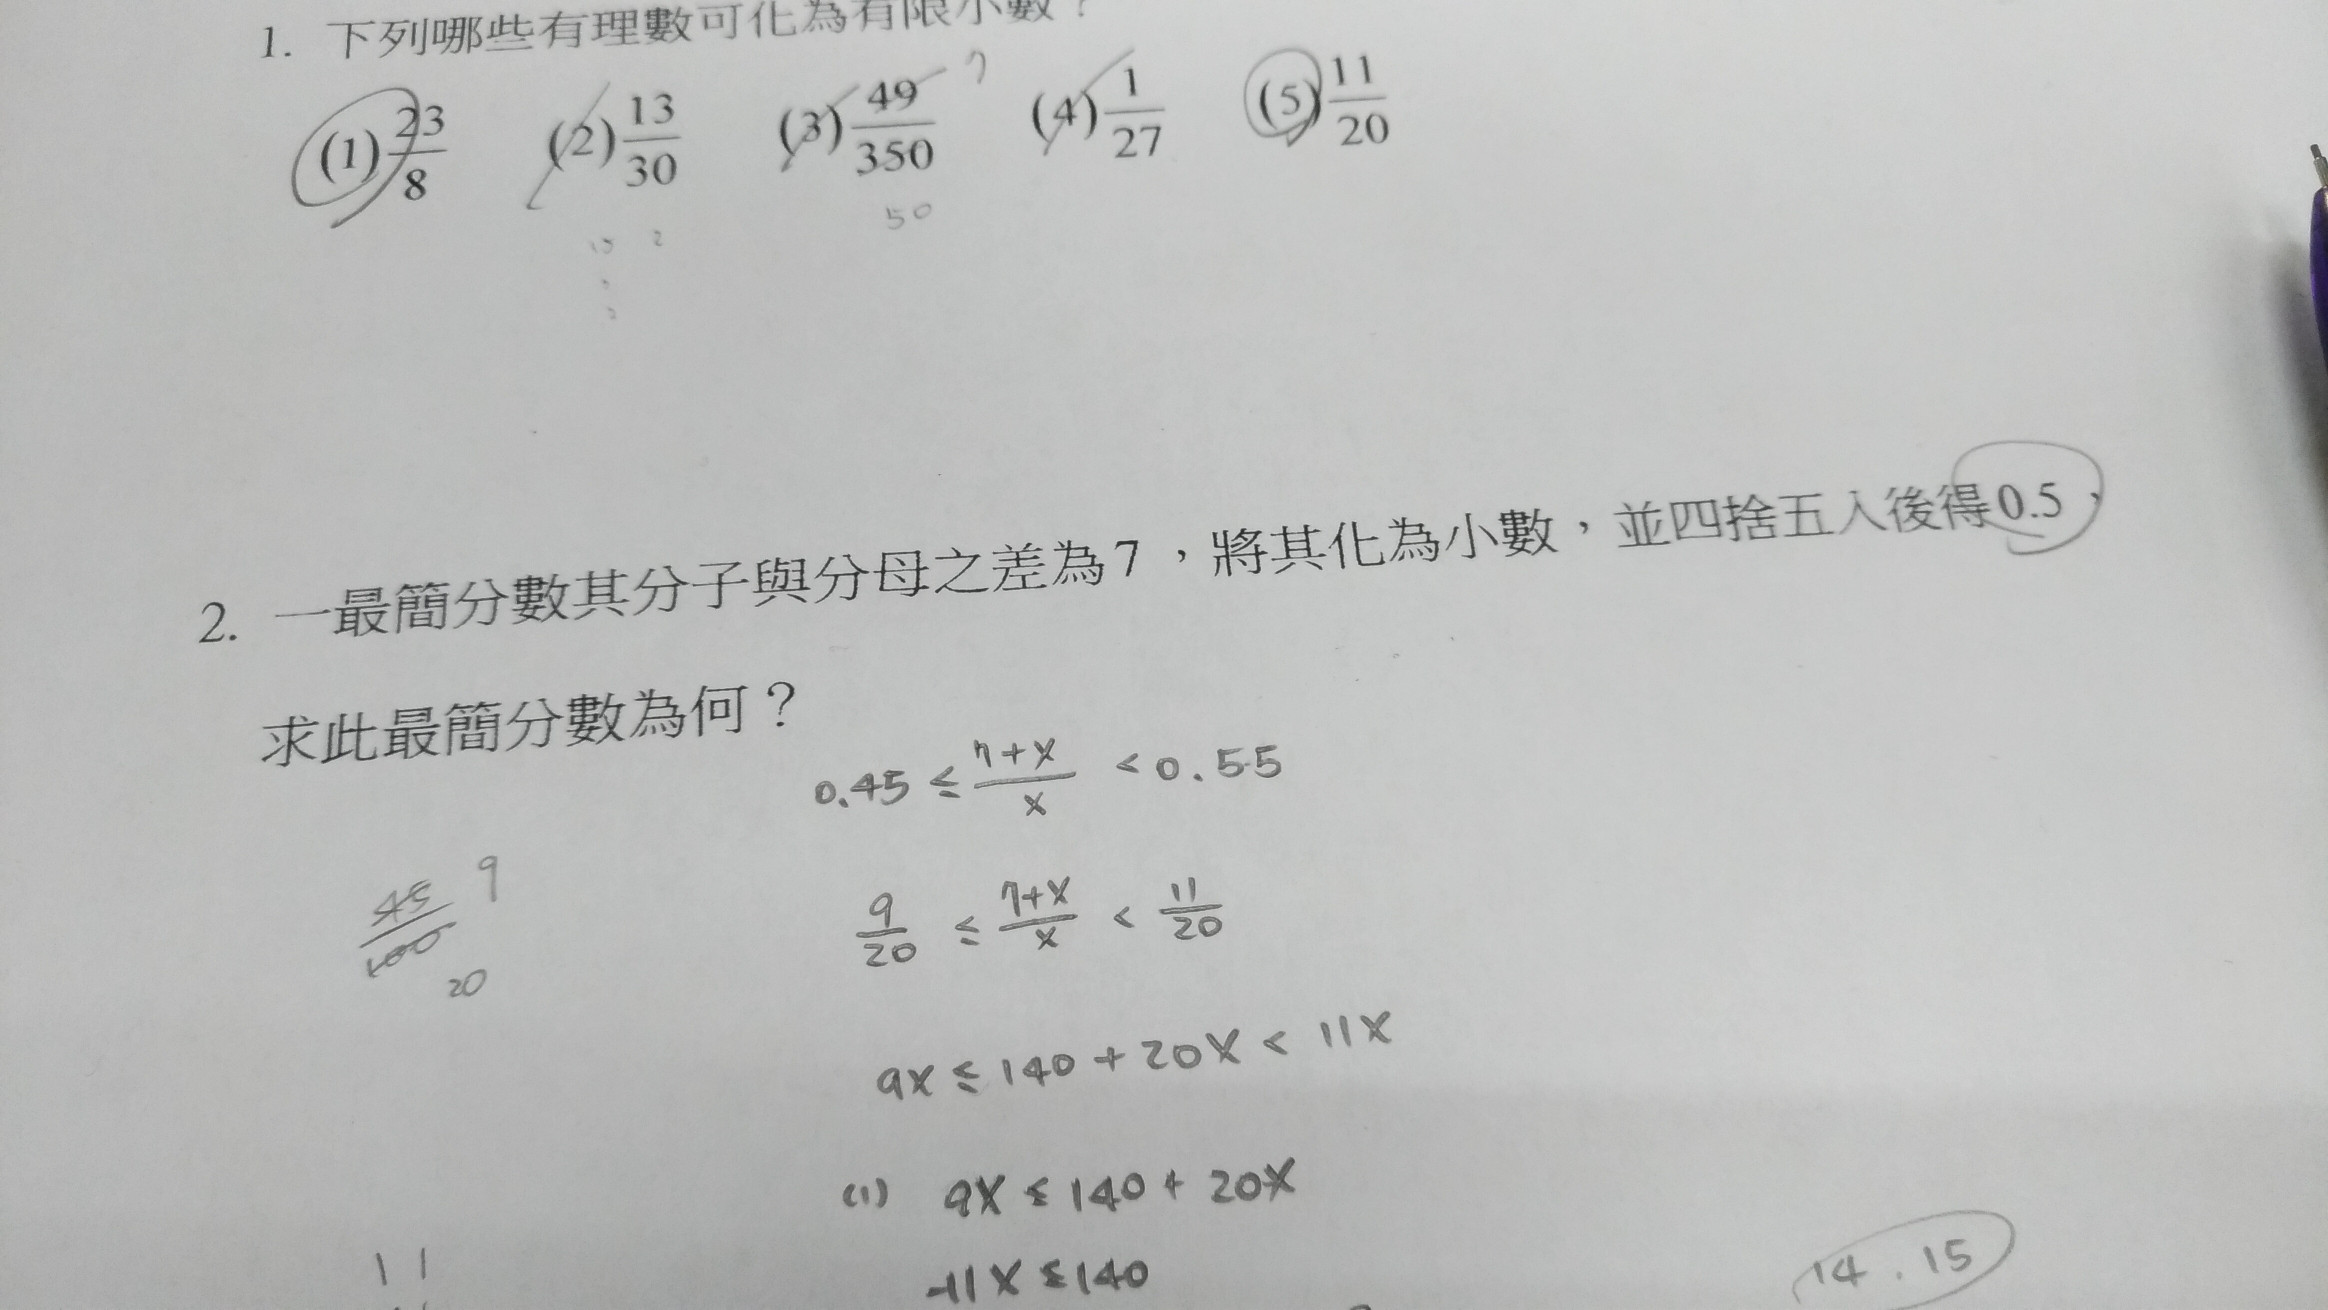 1. 下列哪些有理數可化為有限小數？
(1) 23/8 (2) 13/30 (3) 49/350 (4) 1/27 (5) 11/20
7
50
2
2. 一最簡分數其分子與分母之差為7，將其化為小數，並四捨五入後得0.5，
求此最簡分數為何？
0.45 ≤ (7+x)/x < 0.55
45/100 9 20
9/20 ≤ (7+x)/x < 11/20
9x ≤ 140 + 20x < 11x
(1) 9x ≤ 140 + 20x
-11x ≤ 140
14 . 15
11